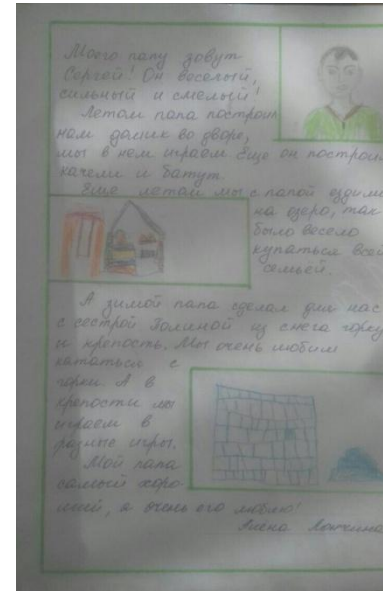 Моего папу зовут
Сергей! Он веселый,
сильный и смелый!
Летом папа построил
нам домик во дворе,
мы в нем играем Еще он построил
качели и батут
Еще летом мы с папой ездили
на озеро, так
было весело
купаться всей
семьей.
А зимой папа сделал для нас
с сестрой Полиной из снега горку
и крепость. Мы очень любим
кататься с
горки А в
крепости мы
играем в
разные игры.
Мой папа
самый хоро-
ший, я очень его люблю!
Алена